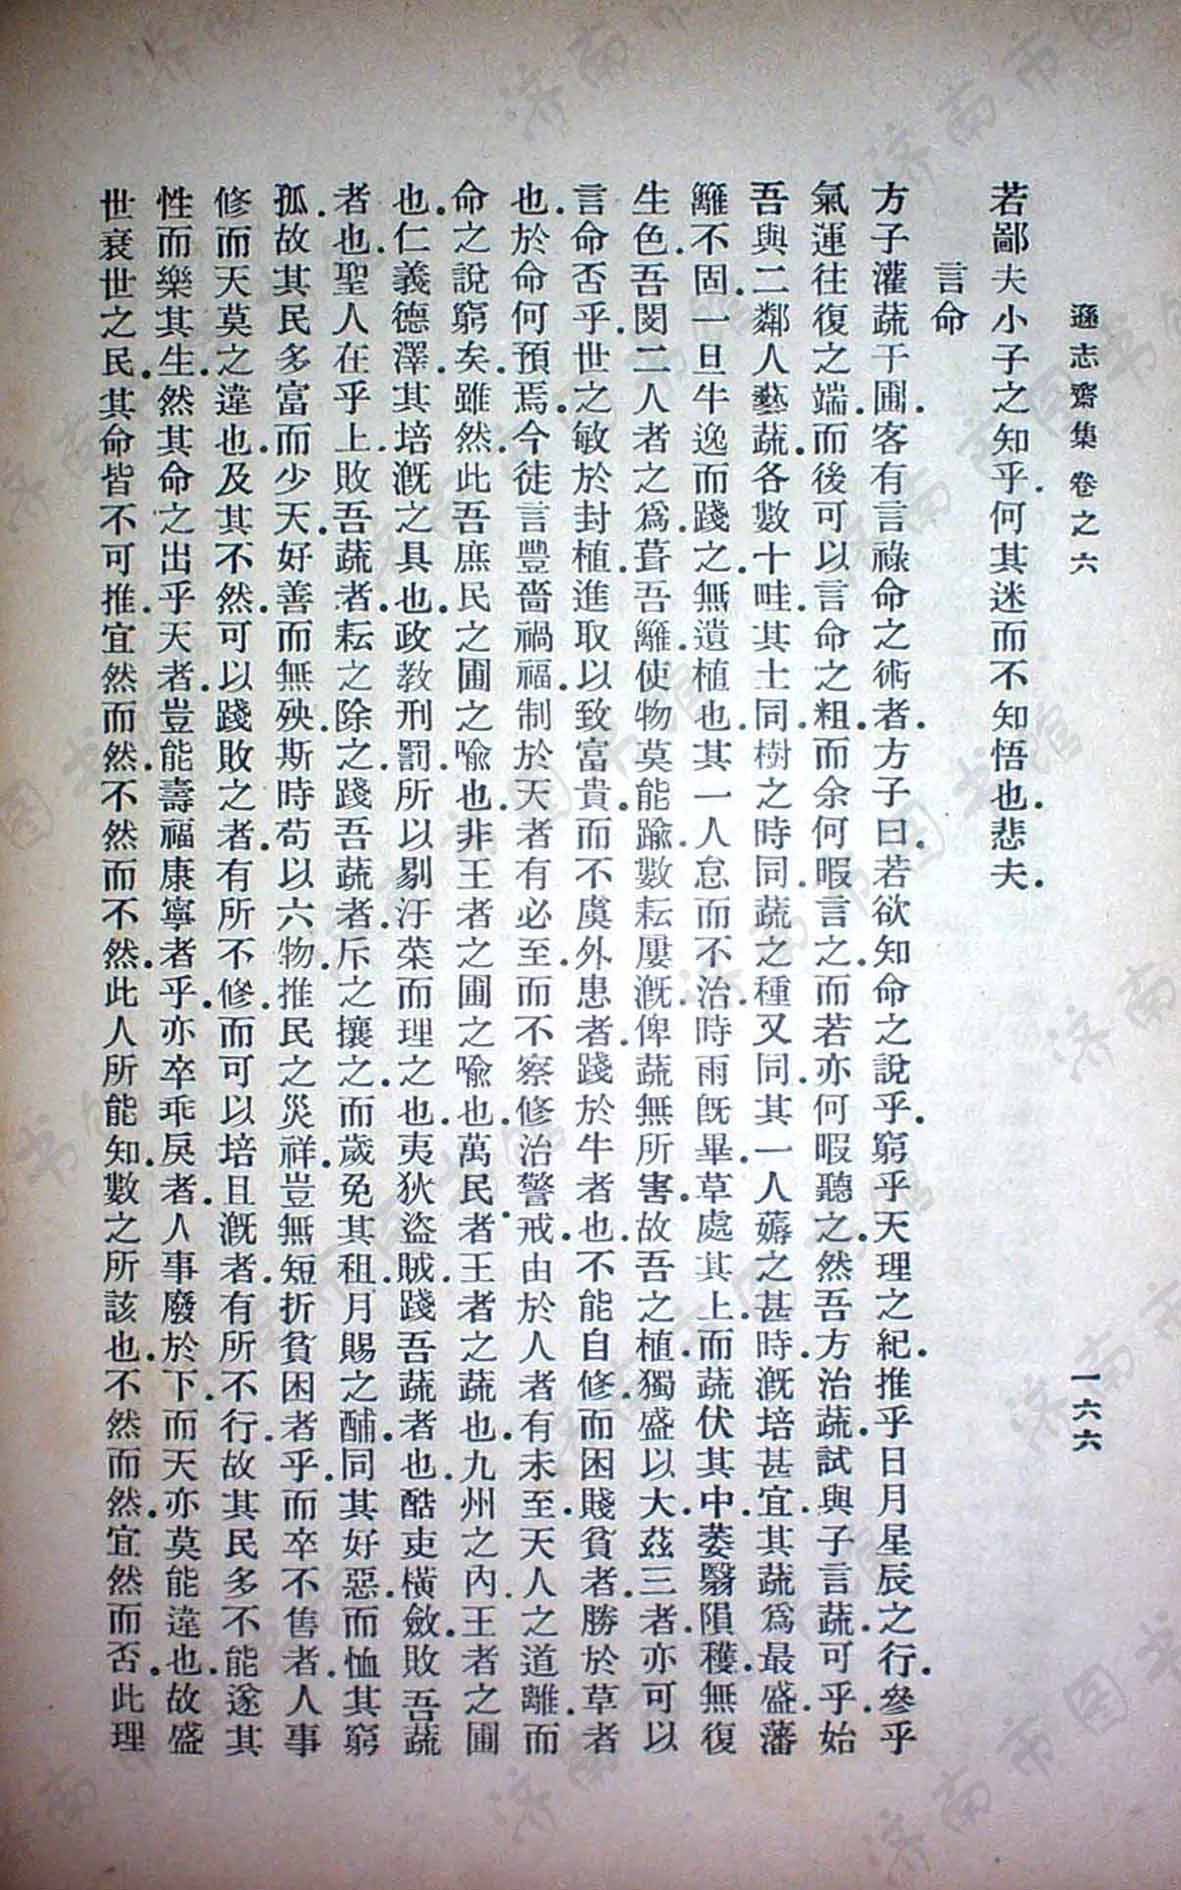 遜志齋集 卷之六 一六六
若鄙夫小子之知乎.何其迷而不知悟也.悲夫.
言命
方子灌蔬于圃.客有言祿命之術者.方子曰.若欲知命之說乎.窮乎天理之紀.推乎日月星辰之行.參乎
氣運往復之端.而後可以言命之粗.而余何暇言之.而若亦何暇聽之.然吾方治蔬.試與子言蔬.可乎.始
吾與二鄰人藝蔬.各數十畦.其土同.樹之時同.蔬之種又同.其一人薅之甚時.漑培甚宜.其蔬爲最盛.藩
籬不固.一旦牛逸而踐之.無遺植也.其一人怠而不治.時雨旣畢.草處其上.而蔬伏其中.萎翳隕穫.無復
生色.吾閔二人者之爲.葺吾籬.使物莫能踰.數耘屢漑.俾蔬無所害.故吾之植.獨盛以大.茲三者.亦可以
言命否乎.世之敏於封植進取.以致富貴.而不虞外患者.踐於牛者也.不能自修.而困賤貧者.勝於草者
也.於命何預焉.今徒言豐嗇禍福.制於天者有必至.而不察修治警戒.由於人者有未至.天人之道離.而
命之說窮矣.雖然.此吾庶民之圃之喩也.非王者之圃之喩也.萬民者.王者之蔬也.九州之內.王者之圃
也.仁義德澤.其培漑之具也.政教刑罰.所以剔汙萊而理之也.夷狄盜賊.踐吾蔬者也.酷吏橫斂.敗吾蔬
者也.聖人在乎上.敗吾蔬者.耘之除之.踐吾蔬者.斥之攘之.而歲免其租.月賜之酺.同其好惡.而恤其窮
孤.故其民多富而少夭.好善而無殃.斯時苟以六物.推民之災祥.豈無短折貧困者乎.而卒不售者.人事
修而天莫之違也.及其不然.可以踐敗之者.有所不修.而可以培且漑者.有所不行.故其民多不能遂其
性而樂其生.然其命之出乎天者.豈能壽福康寧者乎.亦卒乖戾者.人事廢於下.而天亦莫能違也.故盛
世衰世之民.其命皆不可推.宜然而然.不然而不然.此人所能知.數之所該也.不然而然.宜然而否.此理